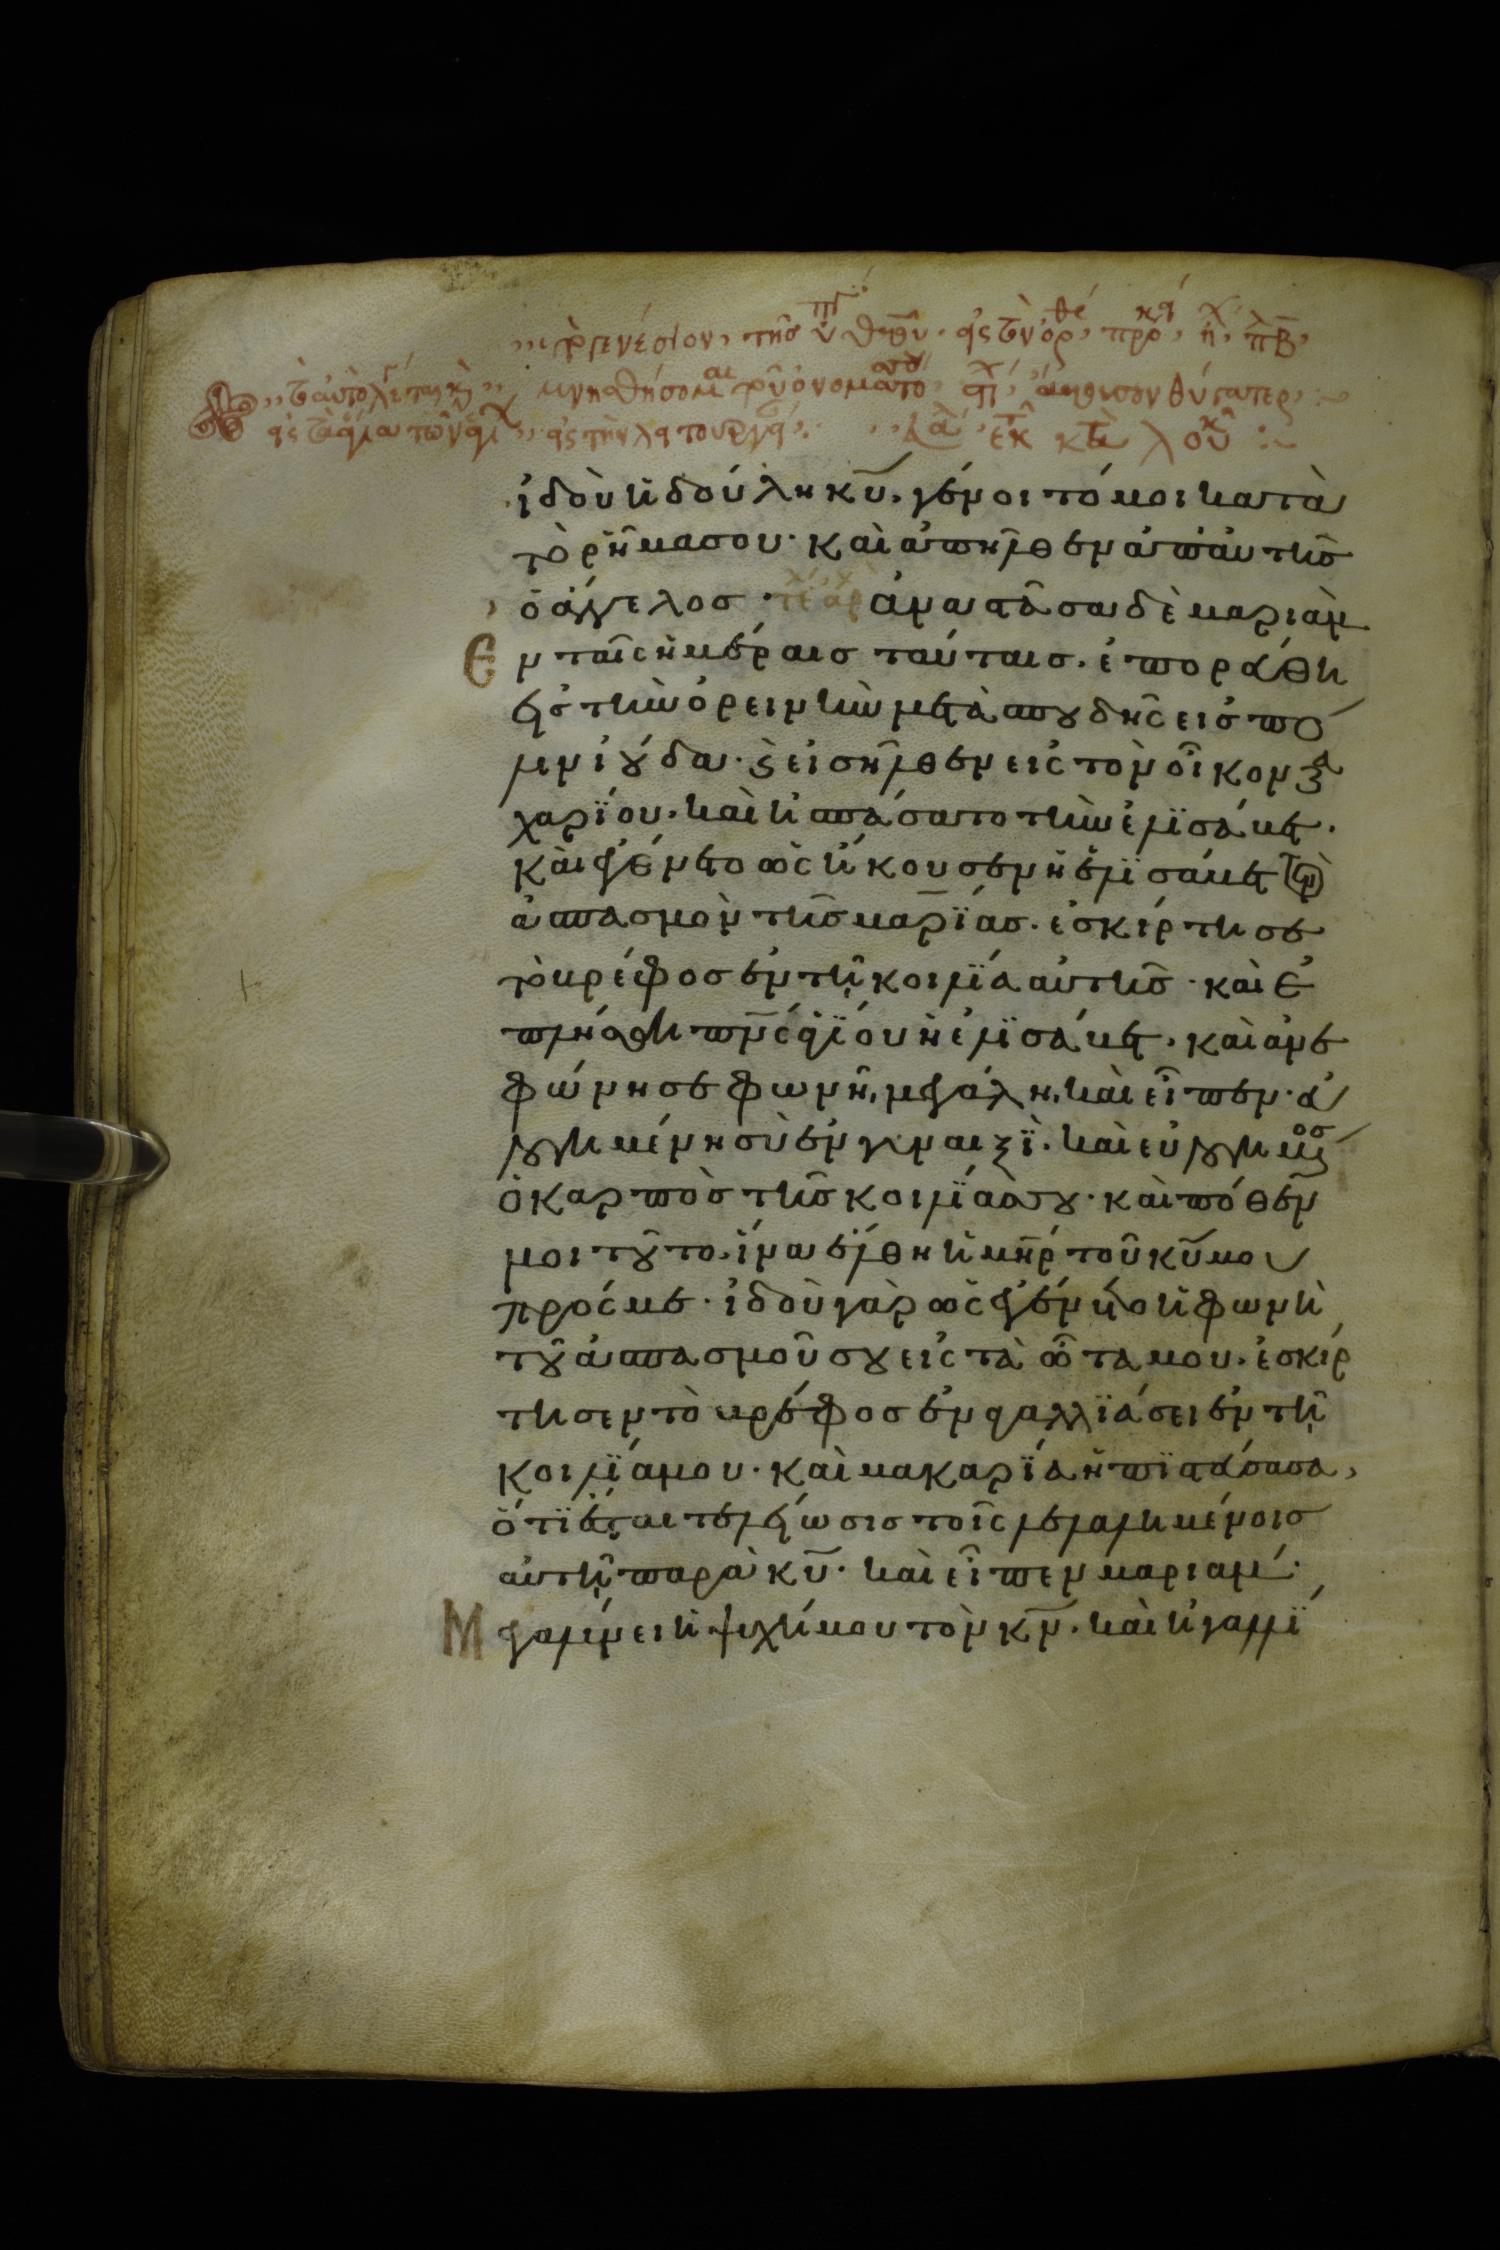 γενέσιον, της ὑ θεοτόκου εἰς τὸν ὄρθρον
μνησθήσομαι τοῦ ὀνόματος ἄκουσον θύγατερ
εἰς τὴν λειτουργίαν ἐκ κτ λουκ
ἰδοὺ ἡ δούλη κυ̅. γένοιτό μοι κατὰ
τὸ ρῆμα σου· καὶ ἀπῆλθεν ἀπ' αὐτῆς
ὁ ἄγγελος · ἀναστᾶσα δὲ μαριὰμ
Ἐν ταῖς ἡμέραις ταύταις. ἐπορεύθη
εἰς τὴν ὀρεινὴν μετὰ σπουδῆς εἰς πό
λιν ἰούδα· καὶ εἰσῆλθεν εἰς τὸν οἶκον ζα
χαρΐου. καὶ ἠσπάσατο τὴν ἐλϊσάβετ.
καὶ ἐγένετο ὡς ἤκουσεν ἡ ἐλϊσάβετ τὸν
ἀσπασμὸν τῆς μαρΐας. ἐσκίρτησε
τὸ βρέφος ἐν τῇ κοιλΐα αὐτῆς · καὶ ἐ
πλήσθη πν̅ς ἁγΐου ἡ ἐλϊσάβετ. καὶ ἀνε
φώνησε φωνῇ μεγάλη. καὶ εἶπεν· εὐ
λογημένη σὺ ἐν γυναιξΐ. καὶ εὐλογημένος
ὁ καρπὸς τῆς κοιλΐας σου· καὶ πόθεν
μοι τοῦτο. ἵνα ἔλθη ἡ μη̅ρ τοῦ κυ̅ μου
πρός με · ἰδοὺ γὰρ ὡς ἐγένετο ἡ φωνὴ
τοῦ ἀσπασμοῦ σου εἰς τὰ ὦτα μου. ἐσκίρ
τησεν τὸ βρέφος ἐν ἀγαλλϊάσει ἐν τῇ
κοιλΐα μου. καὶ μακαρΐα ἡ πϊστεύσασα,
ὅτϊ ἔσται τελείωσις τοῖς λελαλημένοις
αὐτῇ παρὰ κυ̅· καὶ εἶπεν μαριάμ·
Μεγαλύνει ἡ ψυχή μου τὸν κν̅. καὶ ἠγαλλΐ